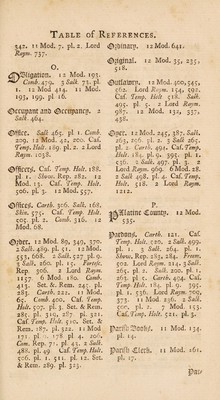 TABLE OF REFERENCES.
342. 11 Mod. 7. pl. 2. 2 Lord
Raym. 737.
O.
Obligation. 12 Mod. 193.
Comb. 479. 3 Salk. 73. pl.
1. 12 Mod. 414. 11 Mod.
193, 199. pl. 16.
Occupant and Occupancy. 2
Salk. 464.
Office. Salk. 465. pl. 1. Comb.
209. 12 Mod. 42, 200. Cas.
Temp. Holt. 189. pl. 2. 2 Lord
Raym. 1038.
Offices. Cas. Temp. Holt. 188.
pl. 1. Show. Rep. 282. 12
Mod. 13. Cas. Temp. Holt.
506. pl. 3. 12 Mod. 557.
Officers. Carth. 316. Salk. 168.
Skin. 575. Cas. Temp. Holt.
205. pl. 2. Comb. 316. 12
Mod. 68.
Order. 12 Mod. 89, 349, 370.
2 Salk. 489. pl. 51. 12 Mod.
553, 668. 2 Salk. 527. pl. 9.
2 Salk. 260. pl. 15. Foresc.
Rep. 306. 2 Lord Raym.
1157. 6 Mod. 180. Comb.
413. Set. & Rem. 24. pl.
283. Carth. 222. 11 Mod.
65. Comb. 400. Cas. Temp.
Holt. 507. pl. 3. Set. & Rem.
281. pl. 319, 287. pl. 321.
Cas. Temp. Holt. 510. Set. &
Rem. 187. pl. 322. 11 Mod.
171. pl. 0. 178. pl. 4. 206.
Cas. Rep. 71. pl. 43. 2 Salk.
488. pl. 49. Cas. Temp. Holt.
506. pl. 1, 511. pl. 12. Set.
& Rem. 289. pl. 323.
Ordinary. 12 Mod. 641.
Original. 12 Mod. 35, 235,
518.
Outlawry. 12 Mod. 300, 545,
562. Lord Raym. 154, 592.
Cas. Temp. Holt. 518. Salk.
495. pl. 5. 2 Lord Raym.
987. 12 Mod. 132, 337,
436.
Oyer. 12 Mod. 245, 387. Salk.
263, 296. pl. 2. 3 Salk. 265.
pl. 2. Carth. 492. Cas. Temp.
Holt. 184. pl. 9. 395. pl. 1.
2 Salk. 497. pl. 3. 6 Mod. 28.
2 Lord Raym. 969. 6 Mod. 28.
2 Salk. 498. pl. 4. Cas. Temp.
Holt. 518. 2 Lord Raym.
1212.
P.
Palatine County. 12 Mod.
535.
Pardons. Carth. 121. Cas.
Temp. Holt. 520. 2 Salk. 499.
pl. 3. 3 Salk. 264. pl. 1.
Show. Rep. 283, 284. Freem.
502. Lord Raym. 214. 3 Salk.
265. pl. 2. Salk. 200. pl. 1,
263. pl. 2. Carth. 494. Cas.
Temp. Holt. 184. pl. 9. 395.
pl. 1, 536. Lord Raym. 709,
373. 11 Mod. 236. 2 Salk.
500. pl. 4, 503. pl. 7. Cas.
Temp. Holt. 521. pl. 3.
Parish Books. 11 Mod. 134.
pl. 14.
Parish Clerk. 11 Mod. 261.
pl. 17.